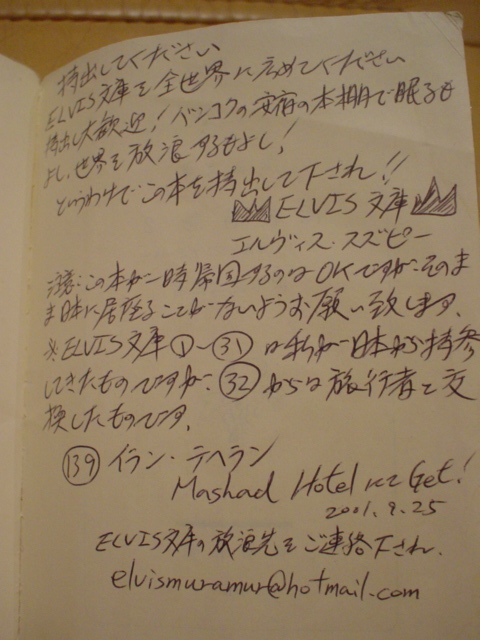 持出してください
ELVIS文庫を全世界に広めてください
持出し大歓迎！バンコクの安宿の本棚で眠るも
よし、世界を放浪するもよし！
というわけでこの本を持出して下され!!
ELVIS文庫
エルヴィス・スズピー
注：この本が一時帰国するのはOKですが、そのま
ま日本に居座ることがないようお願い致します。
※ELVIS文庫①〜㉛は私が日本から持参
してきたものですが、㉜からは旅行者と交
換したものです。
139 イラン・テヘラン
Mashad Hotelにて Get!
2001.9.25
ELVIS文庫の放浪先をご連絡下され.
elvismuramur@hotmail.com